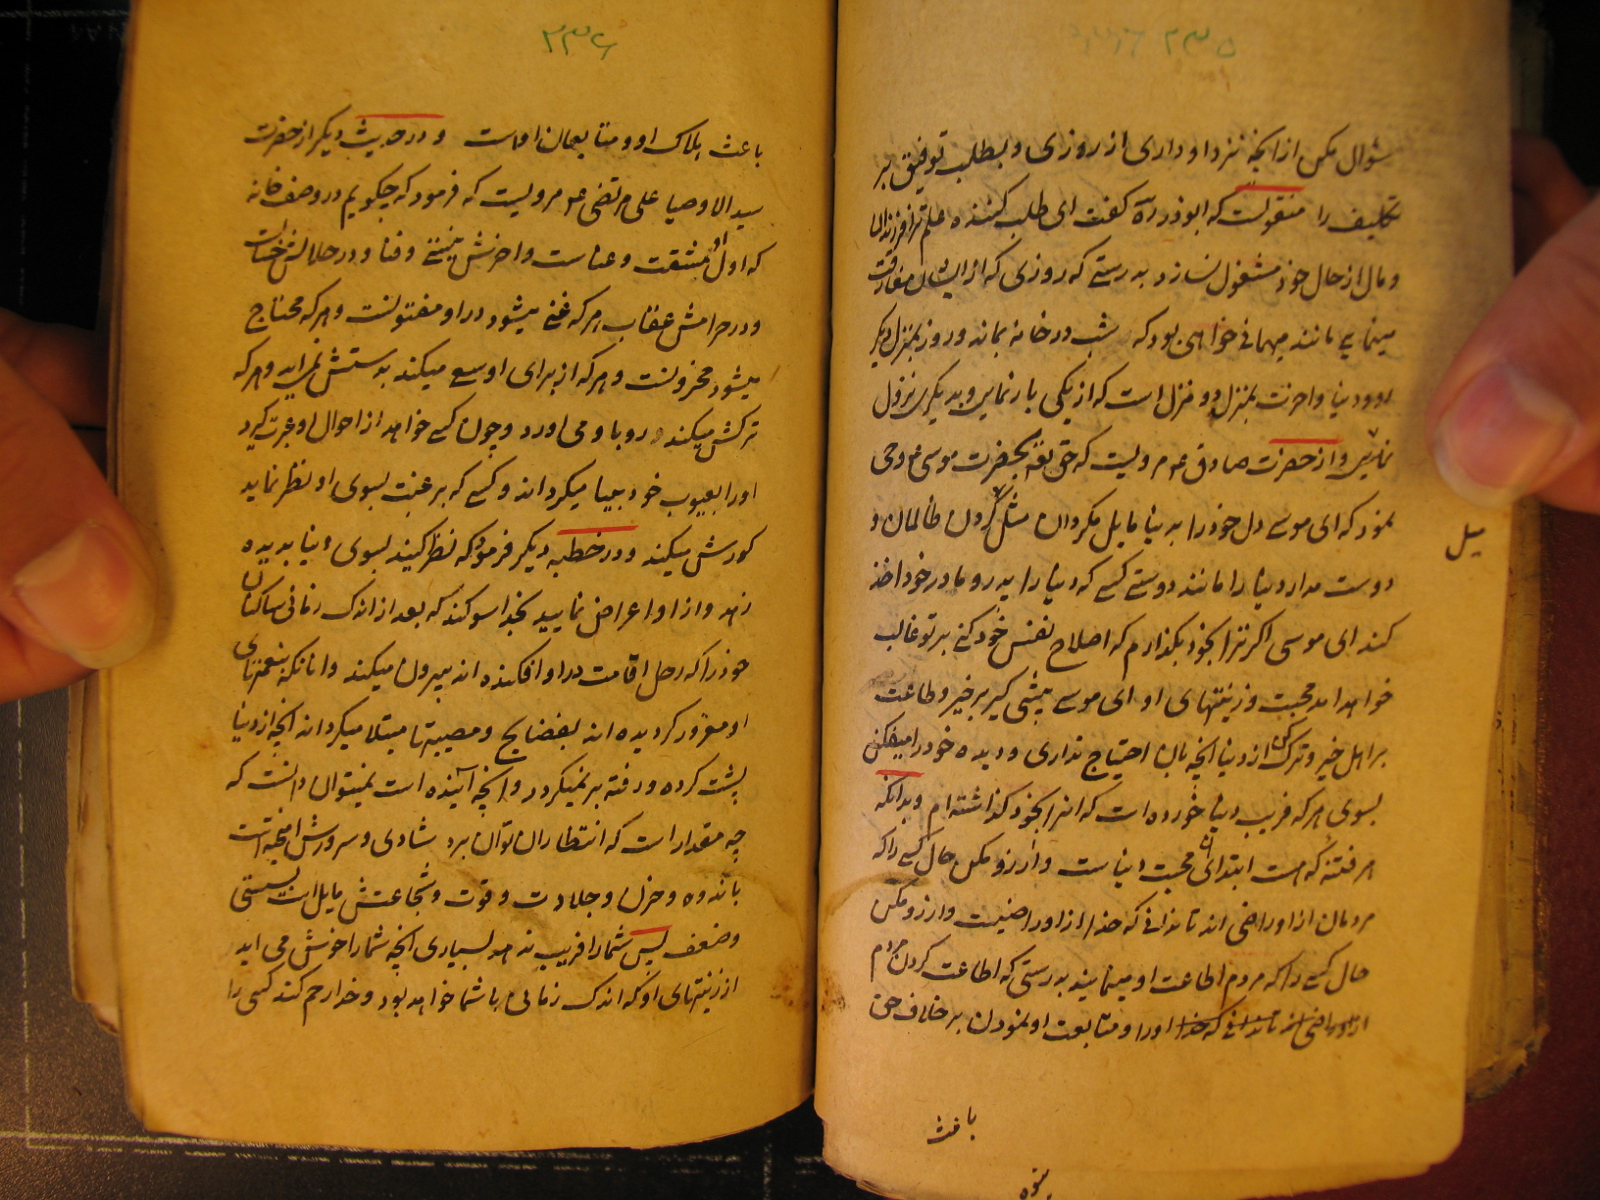 ۲۳۵
سؤال مکن از آنچه نزد او داری از روزی و بطلب توفیق بر
تکلیف را منقولست که ابوذر ره گفت ای طلب کننده علم ترا فرزندان
و مال از حال خود مشغول نسازد بدرستے که روزی که از ایشان مفارقت
مینمایی مانند مهمانی خواهی بود که شب در خانه بماند و روز بمنزل دیگر
رود و دنیا و آخرت بمنزله دو منزل است که از یکی بار نمایی و بدیگری نزول
نمایی و از حضرت صادق ع مرویست که حق تع بحضرت موسی ع وحی
نمود که ای موسے دل خود را بدنیا مایل مگردان مثل میل کردن ظالمان و
دوست مدار دنیا را مانند دوستے کسے که دنیا را پدر و مادر خود اخذ
کند ای موسی اگر ترا بخود بگذارم که اصلاح نفس خود کنے بر تو غالب
خواهد امد محبت و زینتهای او ای موسے پیشی گیر بر خیر و طاعت
بر اهل خیر و ترک کن از دنیا انچه بان احتیاج نداری و دیده خود را میفکن
بسوی هر که فریب دنیا خورده است که انرا بخود گذاشته ام و بدانکه
هر فتنه که هست ابتدای ان محبت دنیا ست و ارزو مکن حال کسے را که
مردمان از او راضی اند تا ندانے که خدا از او راضیست و ارزو مکن
حال کسے را که مردم اطاعت او مینمایند بدرستی که اطاعت کردن مردم
از او راضی اند تا ندانے که خدا او را و متابعت او نمودن بر خلاف حق
میل
باعث
۲۳۶
باعث هلاک او و متابعان اوست و در حدیث دیگر از حضرت
سید الاوصیا علی مرتضی ع مرویست که فرمود که چگویم در وصف خانه
که اول او مشقت و عناست و اخرش نیستے و فنا و در حلالش حسابست
و در حرامش عقاب هر که غنے میشود در او مفتونست و هر که محتاج
میشود محزونست و هر که از برای او سعی میکند بدستش نمی اید و هر که
ترکش میکند رو باو می اورد و چون کسے خواهد از احوال او عبرت گیرد
او را بعیوب خود بینا میگرداند و کسے که برغبت بسوی او نظر نماید
کورش میکند و در خطبه دیگر فرمود که نظر کنید بسوی دنیا بدیده
زهد و از او اعراض نمایید بخدا سوگند که بعد از اندک زمانی ساکنان
خود را که رحل اقامت در او افکنده اند بیرون میکند و انانکه بنعمتهای
او مغرور گردیده اند بفضایح و مصیبتها مبتلا میگرداند انچه از دنیا
پشت کرده و رفته بر نمیگردد و انچه آینده است نمیتوان دانست که
چه مقدار است که انتظار ان توان برد شادی و سرورش امیخته است
باندوه و حزن و جلادت و قوت و شجاعتش مایل است بسستی
و ضعف پس شما را فریب ندهد بسیاری انچه شما را خوش می اید
از زینتهای او که اندک زمانی با شما خواهد بود و خدا رحم کند کسی را